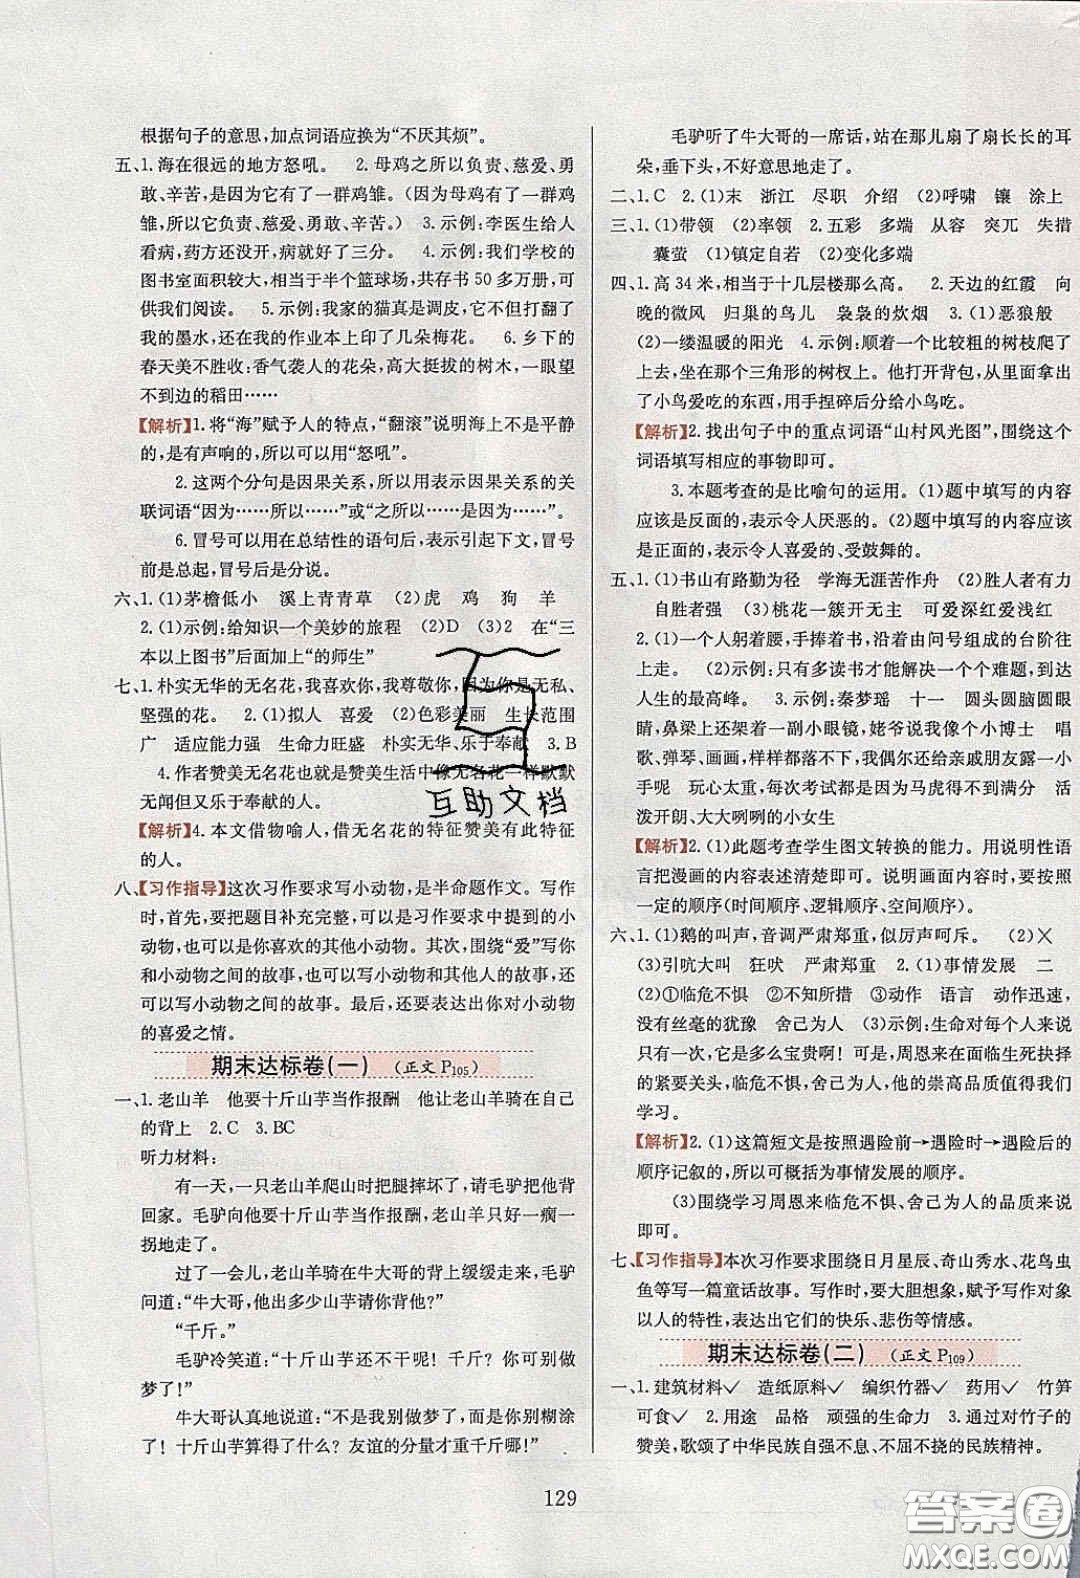 根据句子的意思,加点词语应换为“不厌其烦”。
五、1.海在很远的地方怒吼。 2.母鸡之所以负责、慈爱、勇
敢、辛苦,是因为它有了一群鸡雏。(因为母鸡有了一群鸡
雏,所以它负责、慈爱、勇敢、辛苦。) 3.示例:李医生给人
看病,药方还没开,病就好了三分。 4.示例:我们学校的
图书室面积较大,相当于半个篮球场,共存书 50 多万册,可
供我们阅读。 5.示例:我家的猫真是调皮,它不但打翻了
我的墨水,还在我的作业本上印了几朵梅花。 6.乡下的
春天美不胜收:香气袭人的花朵,高大挺拔的树木,一眼望
不到边的稻田……
【解析】1.将“海”赋予人的特点,“翻滚”说明海上不是平静
的,是有声响的,所以可以用“怒吼”。
2.这两个分句是因果关系,所以用表示因果关系的关
联词语“因为……所以……”或“之所以……是因为……”。
6.冒号可以用在总结性的语句后,表示引起下文,冒号
前是总起,冒号后是分说。
六、1.(1)茅檐低小 溪上青青草 (2)虎 鸡 狗 羊
2.(1)示例:给知识一个美妙的旅程 (2)D (3)2 在“三
本以上图书”后面加上“的师生”
七、1.朴实无华的无名花,我喜欢你,我尊敬你,因为你是无私、
坚强的花。 2.(1)拟人 喜爱 (2)色彩美丽 生长范围
广 适应能力强 生命力旺盛 朴实无华、乐于奉献 3.B
4.作者赞美无名花也就是赞美生活中像无名花一样默默
无闻但又乐于奉献的人。
【解析】4.本文借物喻人,借无名花的特征赞美有此特征
的人。
八、【习作指导】这次习作要求写小动物,是半命题作文。写作
时,首先,要把题目补充完整,可以是习作要求中提到的小
动物,也可以是你喜欢的其他小动物。其次,围绕“爱”写你
和小动物之间的故事,也可以写小动物和其他人的故事,还
可以写小动物之间的故事。最后,还要表达出你对小动物
的喜爱之情。
期末达标卷(一) (正文 P105)
一、1.老山羊 他要十斤山芋当作报酬 他让老山羊骑在自己
的背上 2.C 3.BC
听力材料:
有一天,一只老山羊爬山时把腿摔坏了,请毛驴把他背
回家。毛驴向他要十斤山芋当作报酬,老山羊只好一瘸一
拐地走了。
过了一会儿,老山羊骑在牛大哥的背上缓缓走来,毛驴
问道:“牛大哥,他出多少山芋请你背他?”
“千斤。”
毛驴冷笑道:“十斤山芋还不干呢!千斤?你可别做
梦了!”
牛大哥认真地说道:“不是我别做梦了,而是你别糊涂
了!十斤山芋算得了什么?友谊的分量才重千斤哪!”
毛驴听了牛大哥的一席话,站在那儿扇了扇长长的耳
朵,垂下头,不好意思地走了。
二、1.C 2.(1)末 浙江 尽职 介绍 (2)呼啸 镶 涂上
三、1.(1)带领 (2)率领 2.五彩 多端 从容 突兀 失措
囊萤 (1)镇定自若 (2)变化多端
四、1.高 34 米,相当于十几层楼那么高。 2.天边的红霞 向
晚的微风 归巢的鸟儿 袅袅的炊烟 3.(1)恶狼般
(2)一缕温暖的阳光 4.示例:顺着一个比较粗的树枝爬了
上去,来到那个三角形的树杈上。他打开背包,从里面拿了
小鸟爱吃的东西,用手捏碎后分给小鸟吃。
【解析】2.找出句子中的重点词语“山村风光图”,围绕这个
词语填写相应的事物即可。
3.本题考查的是比喻句的运用。(1)题中填写的内容
应该是反面的,表示令人厌恶的。(2)题中填写的内容应该
是正面的,表示令人喜爱的、受鼓舞的。
五、1.(1)书山有路勤为径 学海无涯苦作舟 (2)胜人者有力
自胜者强 (3)桃花一簇开无主 可爱深红爱浅红
2.(1)一个人躬着腰,手捧着书,沿着由问号组成的台阶往
上走。 (2)示例:只有多读书才能解决一个个难题,到达
人生的最高峰。 3.示例:秦梦瑶 十一 圆头圆脑圆眼
睛,鼻梁上还架着一副小眼镜,姥爷说我像个小博士 唱
歌、弹琴、画画,样样都落不下,我偶尔还给亲戚朋友露一
手呢 玩心太重,每次考试都是因为马虎得不到满分 活
泼开朗、大大咧咧的小女生
【解析】2.(1)此题考查学生图文转换的能力。用说明性语
言把漫画的内容表述清楚即可。说明画面内容,要按照
一定的顺序(时间顺序、逻辑顺序、空间顺序)。
六、1.(1)鹅的叫声,音调严肃郑重,似厉声呵斥。 (2)×
(3)引吭大叫 狂吠 严肃郑重 2.(1)事情发展 二
(2)①临危不惧 ②不知所措 ③动作 语言 动作迅速,
没有丝毫的犹豫 舍己为人 (3)示例:生命对每个人来
说,都是多么宝贵啊!可是,周恩来在面临生死抉择的
紧要关头,临危不惧,舍己为人,他的崇高品质值得我们
学习。
【解析】2.(1)这篇短文是按照遇险前→遇险时→遇险后的
顺序记叙的,所以可概括为事情发展的顺序。
(3)围绕学习周恩来临危不惧、舍己为人的品质来说
即可。
七、【习作指导】本次习作要求围绕日月星辰、奇山秀水、花鸟虫
鱼等写一篇童话故事。写作时,要大胆想象,赋予写作对象
以人的特性,表达出它们的快乐、悲伤等情感。
期末达标卷(二) (正文 P109)
一、1.建筑材料✓ 造纸原料✓ 编织竹器✓ 药用✓ 竹笋
可食✓ 2.用途 品格 顽强的生命力 3.通过对竹子的
赞美,歌颂了中华民族自强不息、不屈不挠的民族精神。
129
互助文档
答案圈
MXQE.COM